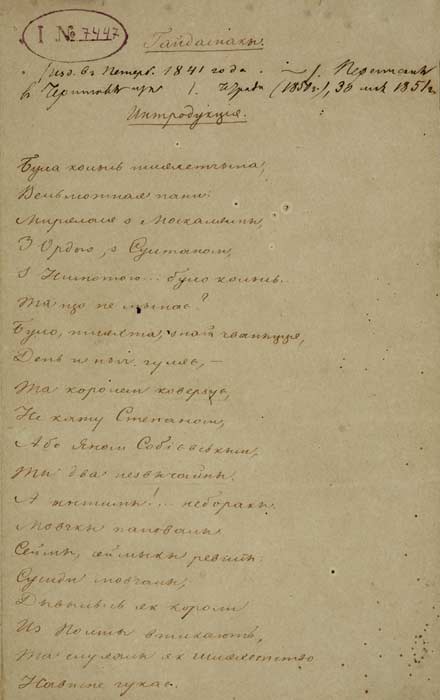 I № 7447
Гайдамаки.
Изд. въ Петерб. 1841 года
(1851г.), 36
Интродукція.
Була колысь шляхетчына,
Вельможная пани:
Мирялася з Москалямы,
З Ордою, з Султаном,
З Нимотою... було колысь..
Та що не мынає?
Було, шляхта, знай чваныця,
День и ничь гуляє, —
Та королем коверзує,
Не кажу Степаном,
Або Яном Собієвським,
Ти два незвычайны.
А инчымы!... небораки
Мовчкы пановалы
Сеймы, сеймыкы ревилы.
Сусиды мовчалы,
Дывылысь як короли
Из Польщы втикають,
Та слухалы як шляхетство
Нависне гукає.